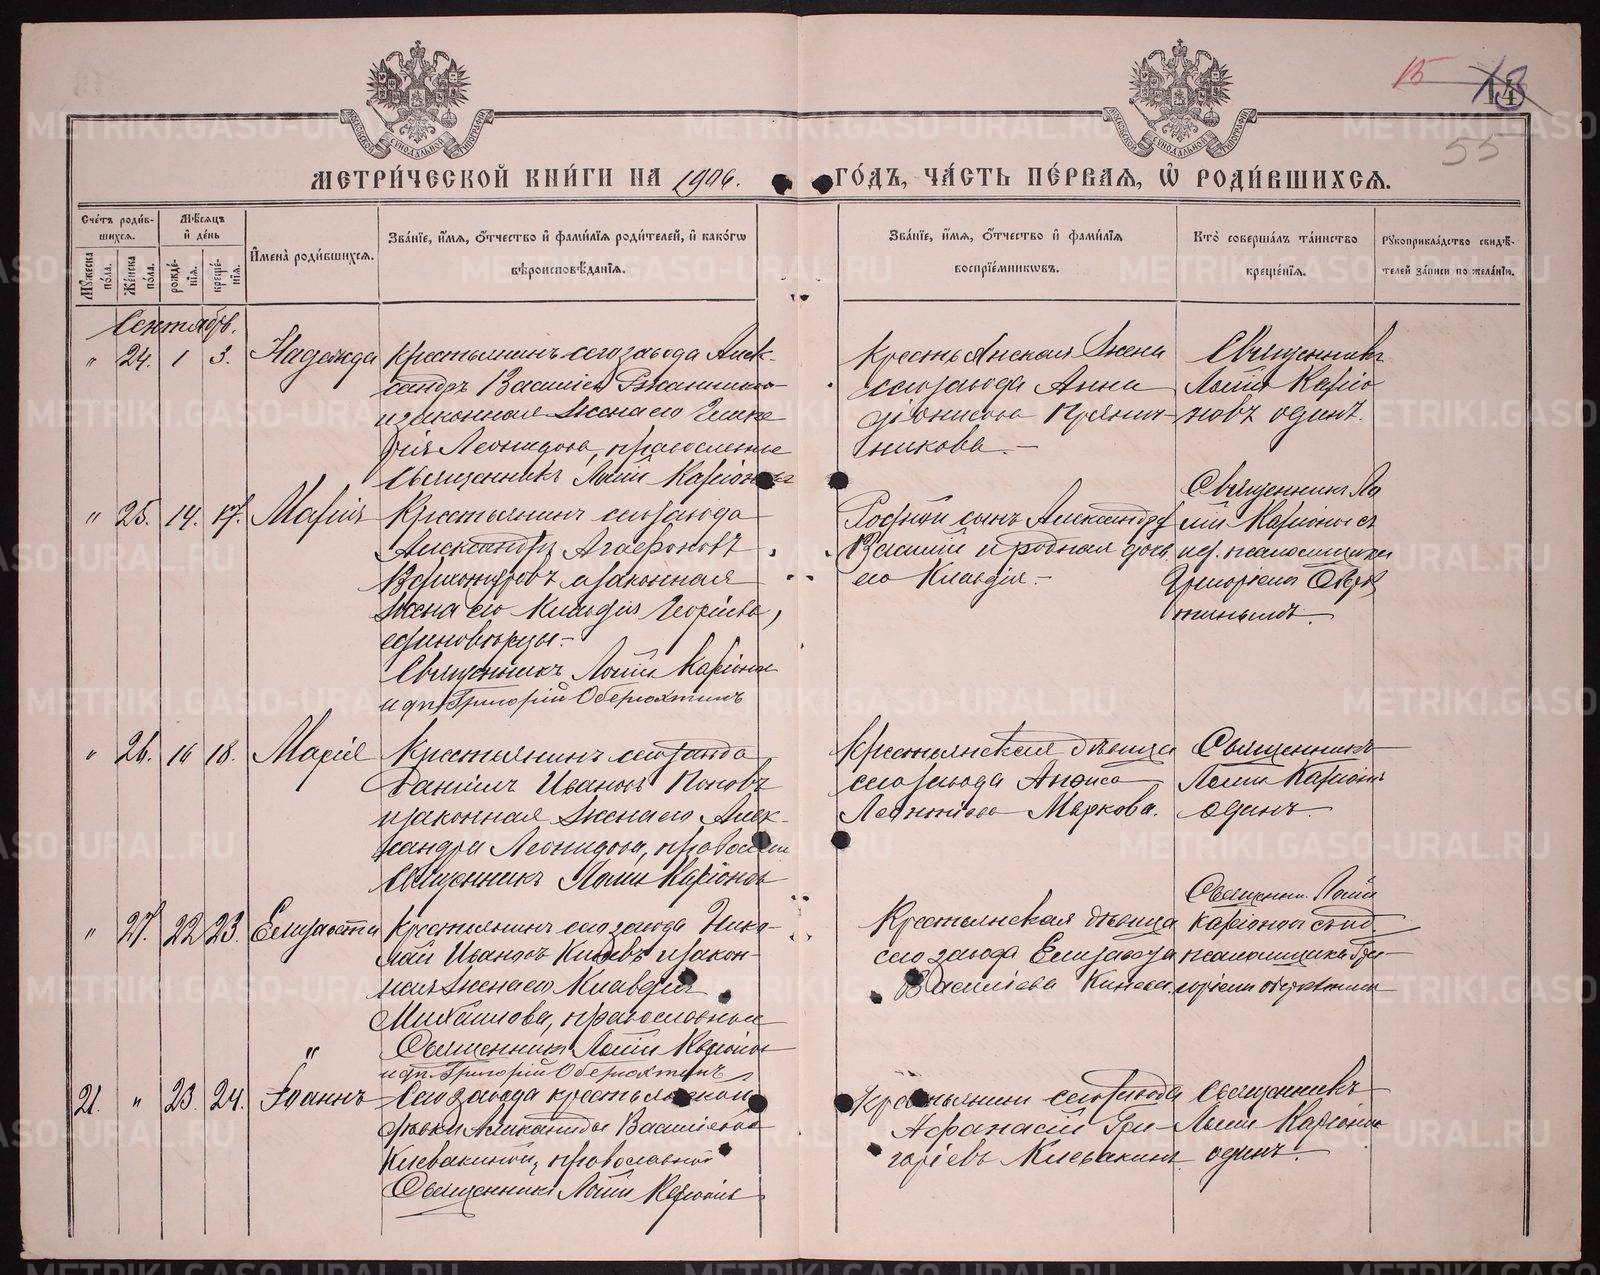 15
14
55
МЕТРИ́ЧЕСКОЙ КНИ́ГИ НА 1906.
ГО́ДЪ, ЧА́СТЬ ПЕ́РВАЯ, Ѿ РОДИ́ВШИХСЯ.
Сче́тъ роди́вшихся.
Му́жеска по́ла.
Же́нска по́ла.
Мѣ́сяцъ и҆ де́нь
рожде́нїя.
креще́нїя.
И҆мена̀ роди́вшихся.
Зва́нїе, и҆́мя, ѻ҆́тчество и҆ фами́лїя роди́телей, и҆ како́гѡ
вѣроисповѣ́данїя.
Зва́нїе, и҆́мя, ѻ҆́тчество и҆ фами́лїя
воспрїе́мниковъ.
Кто̀ соверша́лъ та́инство
креще́нїя.
Рукоприкла́дство свидѣ́-
телей за́писи по жела́нїю.
Сентябрь.
" 24. 1 3. Надежда
Крестьянинъ сего завода Алек-
сандръ Василіевъ
и законная жена его Глике
рія Леонидова, православные
Священникъ Каріоновъ
Крестьянская жена
сего завода Анна
Діонисова Прянич-
никова.-
Священникъ
Каріо
новъ одинъ.
" 25. 14. 17. Марія
Крестьянинъ сего завода
Александръ Агафоновъ
и законная
жена его Клавдія Георгіева,
единовѣрцы.-
Священникъ Каріоновъ
и Григорій Оберюхтинъ
Родной сынъ Александра
Василій и родная дочь
его Клавдія.-
Священникъ
Каріоновъ съ
псаломщикомъ
Григоріемъ Оберюх
тинымъ.
" 26. 16 18. Марія
Крестьянинъ сего завода
Даніилъ Ивановъ Поповъ
и законная жена его Алек-
сандра Леонидова, православн
Священникъ Каріоновъ
Крестьянская дѣвица
сего завода Анфиса
Леонтіева Маркова.
Священникъ
Каріоновъ
одинъ.
" 27. 22 23. Елизавета
Крестьянинъ сего завода Нико-
лай Ивановъ и закон-
ная жена его Клавдія
Михайлова, православные
Священникъ Каріонов
и Григорій Оберюхтинъ
Крестьянская дѣвица
сего завода Елизавета
Василіева Кинева.
Священн.
Каріоновъ съ
псаломщикомъ Гри-
горіемъ Оберюхтин
21. " 23. 24. Іоаннъ
Сего завода крестьянской
дѣвки Василіевой
Клевакиной, православной
Священникъ Каріоновъ
Крестьянинъ сего завода
Афанасій Гри-
горіевъ Клевакинъ
Священникъ
Каріоновъ
одинъ.
METRIKI.GASO-URAL.RU